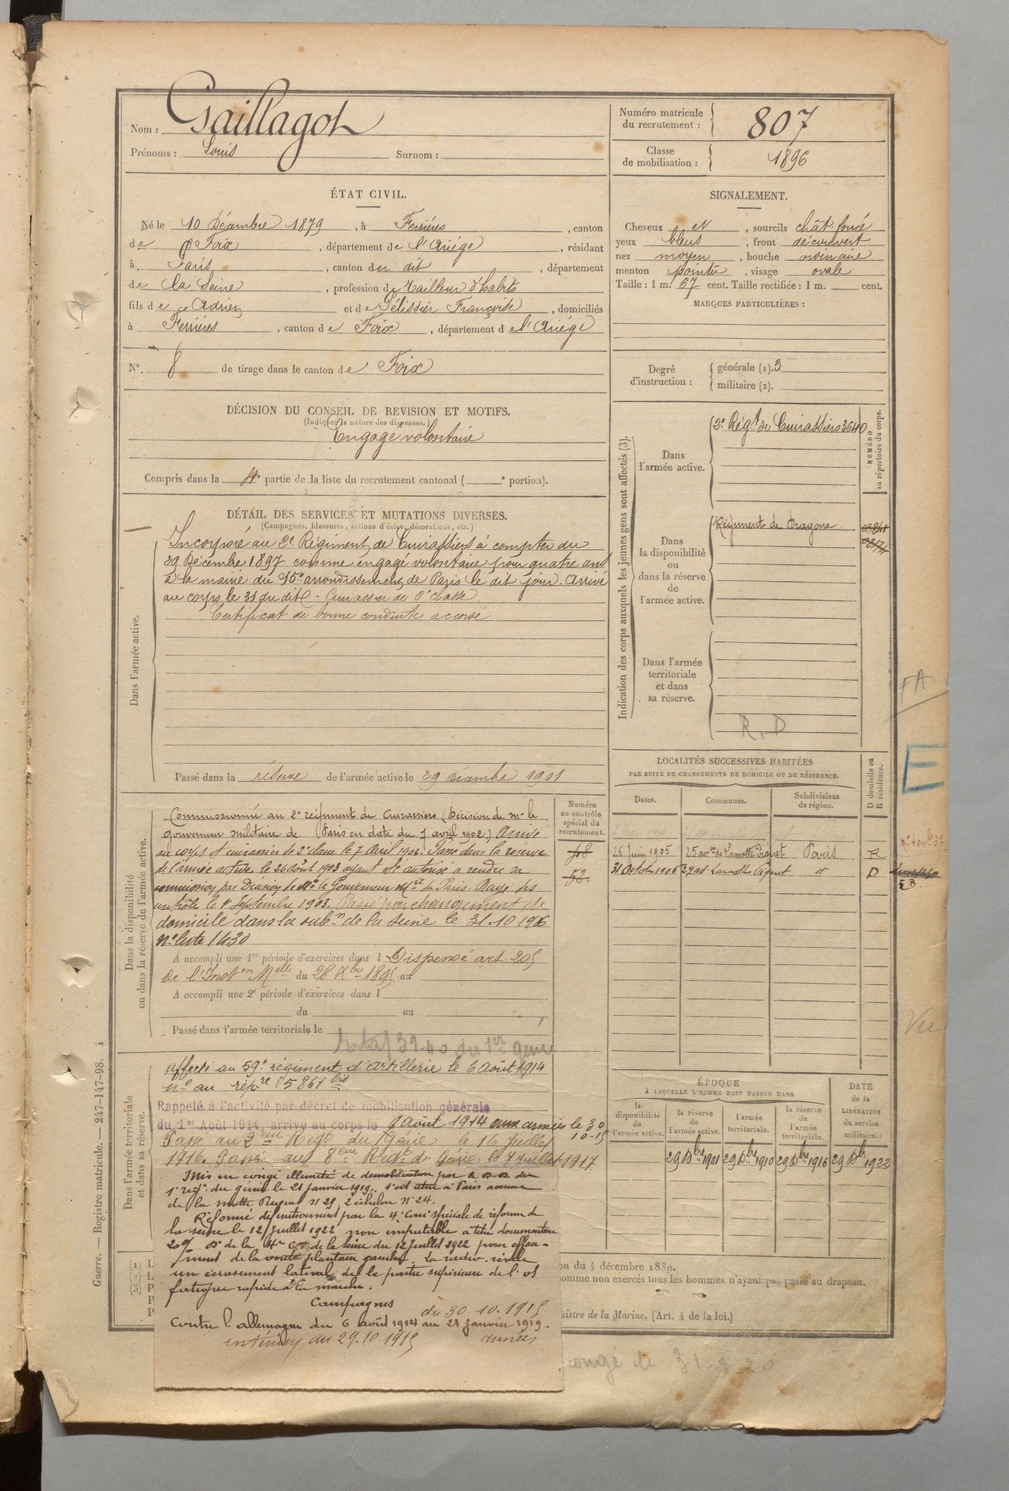 Nom : Gaillagot
Prénoms : Louis Surnom :
Numéro matricule du recrutement : 807
Classe de mobilisation : 1896
ÉTAT CIVIL.
Né le 10 Décembre 1879, à Ferrières, canton
de Foix, département de l'Ariège, résidant
à Paris, canton du dit, département
de la Seine, profession de tailleur d'habits
fils de Adrien et de Pélissier Françoise, domiciliés
à Ferrières, canton de Foix, département de l'Ariège
N° 8 de tirage dans le canton de Foix
SIGNALEMENT.
Cheveux et, sourcils chât. foncé
yeux bleus, front découvert
nez moyen, bouche ordinaire
menton pointu, visage ovale
Taille : 1 m. 67 cent. Taille rectifiée : 1 m. cent.
MARQUES PARTICULIÈRES :
Degré d'instruction : générale (1). 3
militaire (2).
DÉCISION DU CONSEIL DE REVISION ET MOTIFS.
(Indiquer la nature des dispenses.)
Engagé volontaire
Compris dans la 4e partie de la liste du recrutement cantonal ( e portion).
DÉTAIL DES SERVICES ET MUTATIONS DIVERSES.
(Campagnes, blessures, actions d'éclat, décorations, etc.)
Dans l'armée active.
Incorporé au 2e Régiment de Cuirassiers à compter du
29 Décembre 1897 comme engagé volontaire pour quatre ans
à la mairie du 15e arrondissement de Paris le dit jour. Arrivé
au corps le 31 du dit. Cuirassier de 2e classe
Certificat de bonne conduite accordé
Passé dans la réserve de l'armée active le 29 décembre 1901
Indication des corps auxquels les jeunes gens sont affectés (3).
NUMÉRO au répertoire du corps.
Dans l'armée active.
2e Régt de Cuirassiers 3640
Dans la disponibilité ou dans la réserve de l'armée active.
Régiment de dragons
Dans l'armée territoriale et dans sa réserve.
R. D
FA
E
Vu
LOCALITÉS SUCCESSIVES HABITÉES
PAR SUITE DE CHANGEMENTS DE DOMICILE OU DE RÉSIDENCE.
Dates. Communes. Subdivisions de région. D domicile ou R résidence.
26 Juin 1905 25 av. de Lamotte Piquet Paris R
31 Octobre 1906 29 av. Lamotte Piquet d° D
Dans la disponibilité ou dans la réserve de l'armée active.
Numéro au contrôle spécial du recrutement.
Commissionné au 2e régiment de Cuirassiers (Décision de Mr le
gouverneur militaire de Paris en date du 7 avril 1902) Arrivé
au corps et cuirassier de 2e classe le 7 Avril 1902. Passé dans la réserve
de l'armée active le 20 août 1903 ayant été autorisé à rendre sa
commission par Décision de Mr le Gouverneur Mre de Paris. Rayé des
contrôles le 1 Septembre 1903. Passé par changement de
domicile dans la subon de la Seine le 31.10.1906
n° liste 1430
A accompli une 1re période d'exercices dans l Dispensé art. 205
de l'Inston Melle du 28 Xbre 1895 au
A accompli une 2e période d'exercices dans l
du au
Passé dans l'armée territoriale le
Dans l'armée territoriale et dans sa réserve.
affecté au 59e régiment d'artillerie le 6 août 1914
n° au répre 15861 bis
Rappelé à l'activité par décret de mobilisation générale
du 1er Août 1914, arrivé au corps le 6 Août 1914 aux armées le 30
10-15
Passé au 9ème Régt du Génie le 16 Juillet
1916. Passé au 8ème Régt de Génie le 4 juillet 1917
Mis en congé illimité de démobilisation par le
1er régt du génie le 21 janvier 1919, s'est retiré à Paris avenue
de la motte Piquet n° 29, 2e échelon n° 24.
Réformé définitivement par la 4e Comon spéciale de réforme de
la Seine le 12 juillet 1922 non imputable à titre documentaire
de la Seine du 12 juillet 1922 pour efface-
ment de la voute plantaire gauche. La radio révèle
un écrasement latéral de la partie supérieure de l'os
fatigue rapide à la marche.
Campagnes
Contre l'allemagne du 6 août 1914 au 21 janvier 1919.
intérieur au 29.10.1915
du 30.10.1915
armées
ÉPOQUE
À LAQUELLE L'HOMME DOIT PASSER DANS
la disponibilité de l'armée active. la réserve de l'armée active. l'armée territoriale. la réserve de l'armée territoriale.
DATE DE LA LIBÉRATION DU SERVICE MILITAIRE.
29 Xbre 1901 29 Xbre 1910 29 Xbre 1916 29 Xbre 1922
on du 4 décembre 1889.
omme non exercés tous les hommes n'ayant pas passé au drapeau.
nistre de la Marine. (Art. 4 de la loi.)
congé le 31-8-20
Guerre. — Registre matricule. — 247-147-98.